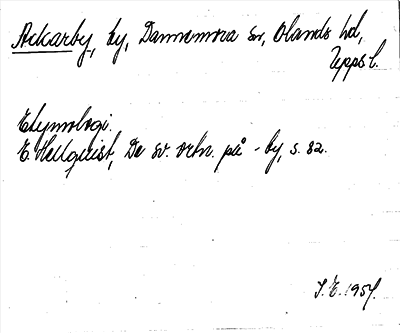 Ackarby, by, Dannemora sn, Olands hd,
Upps l.
Etymologi.
E. Hellquist, De sv. ortn. på -by, s. 82.
S. E. 1954.